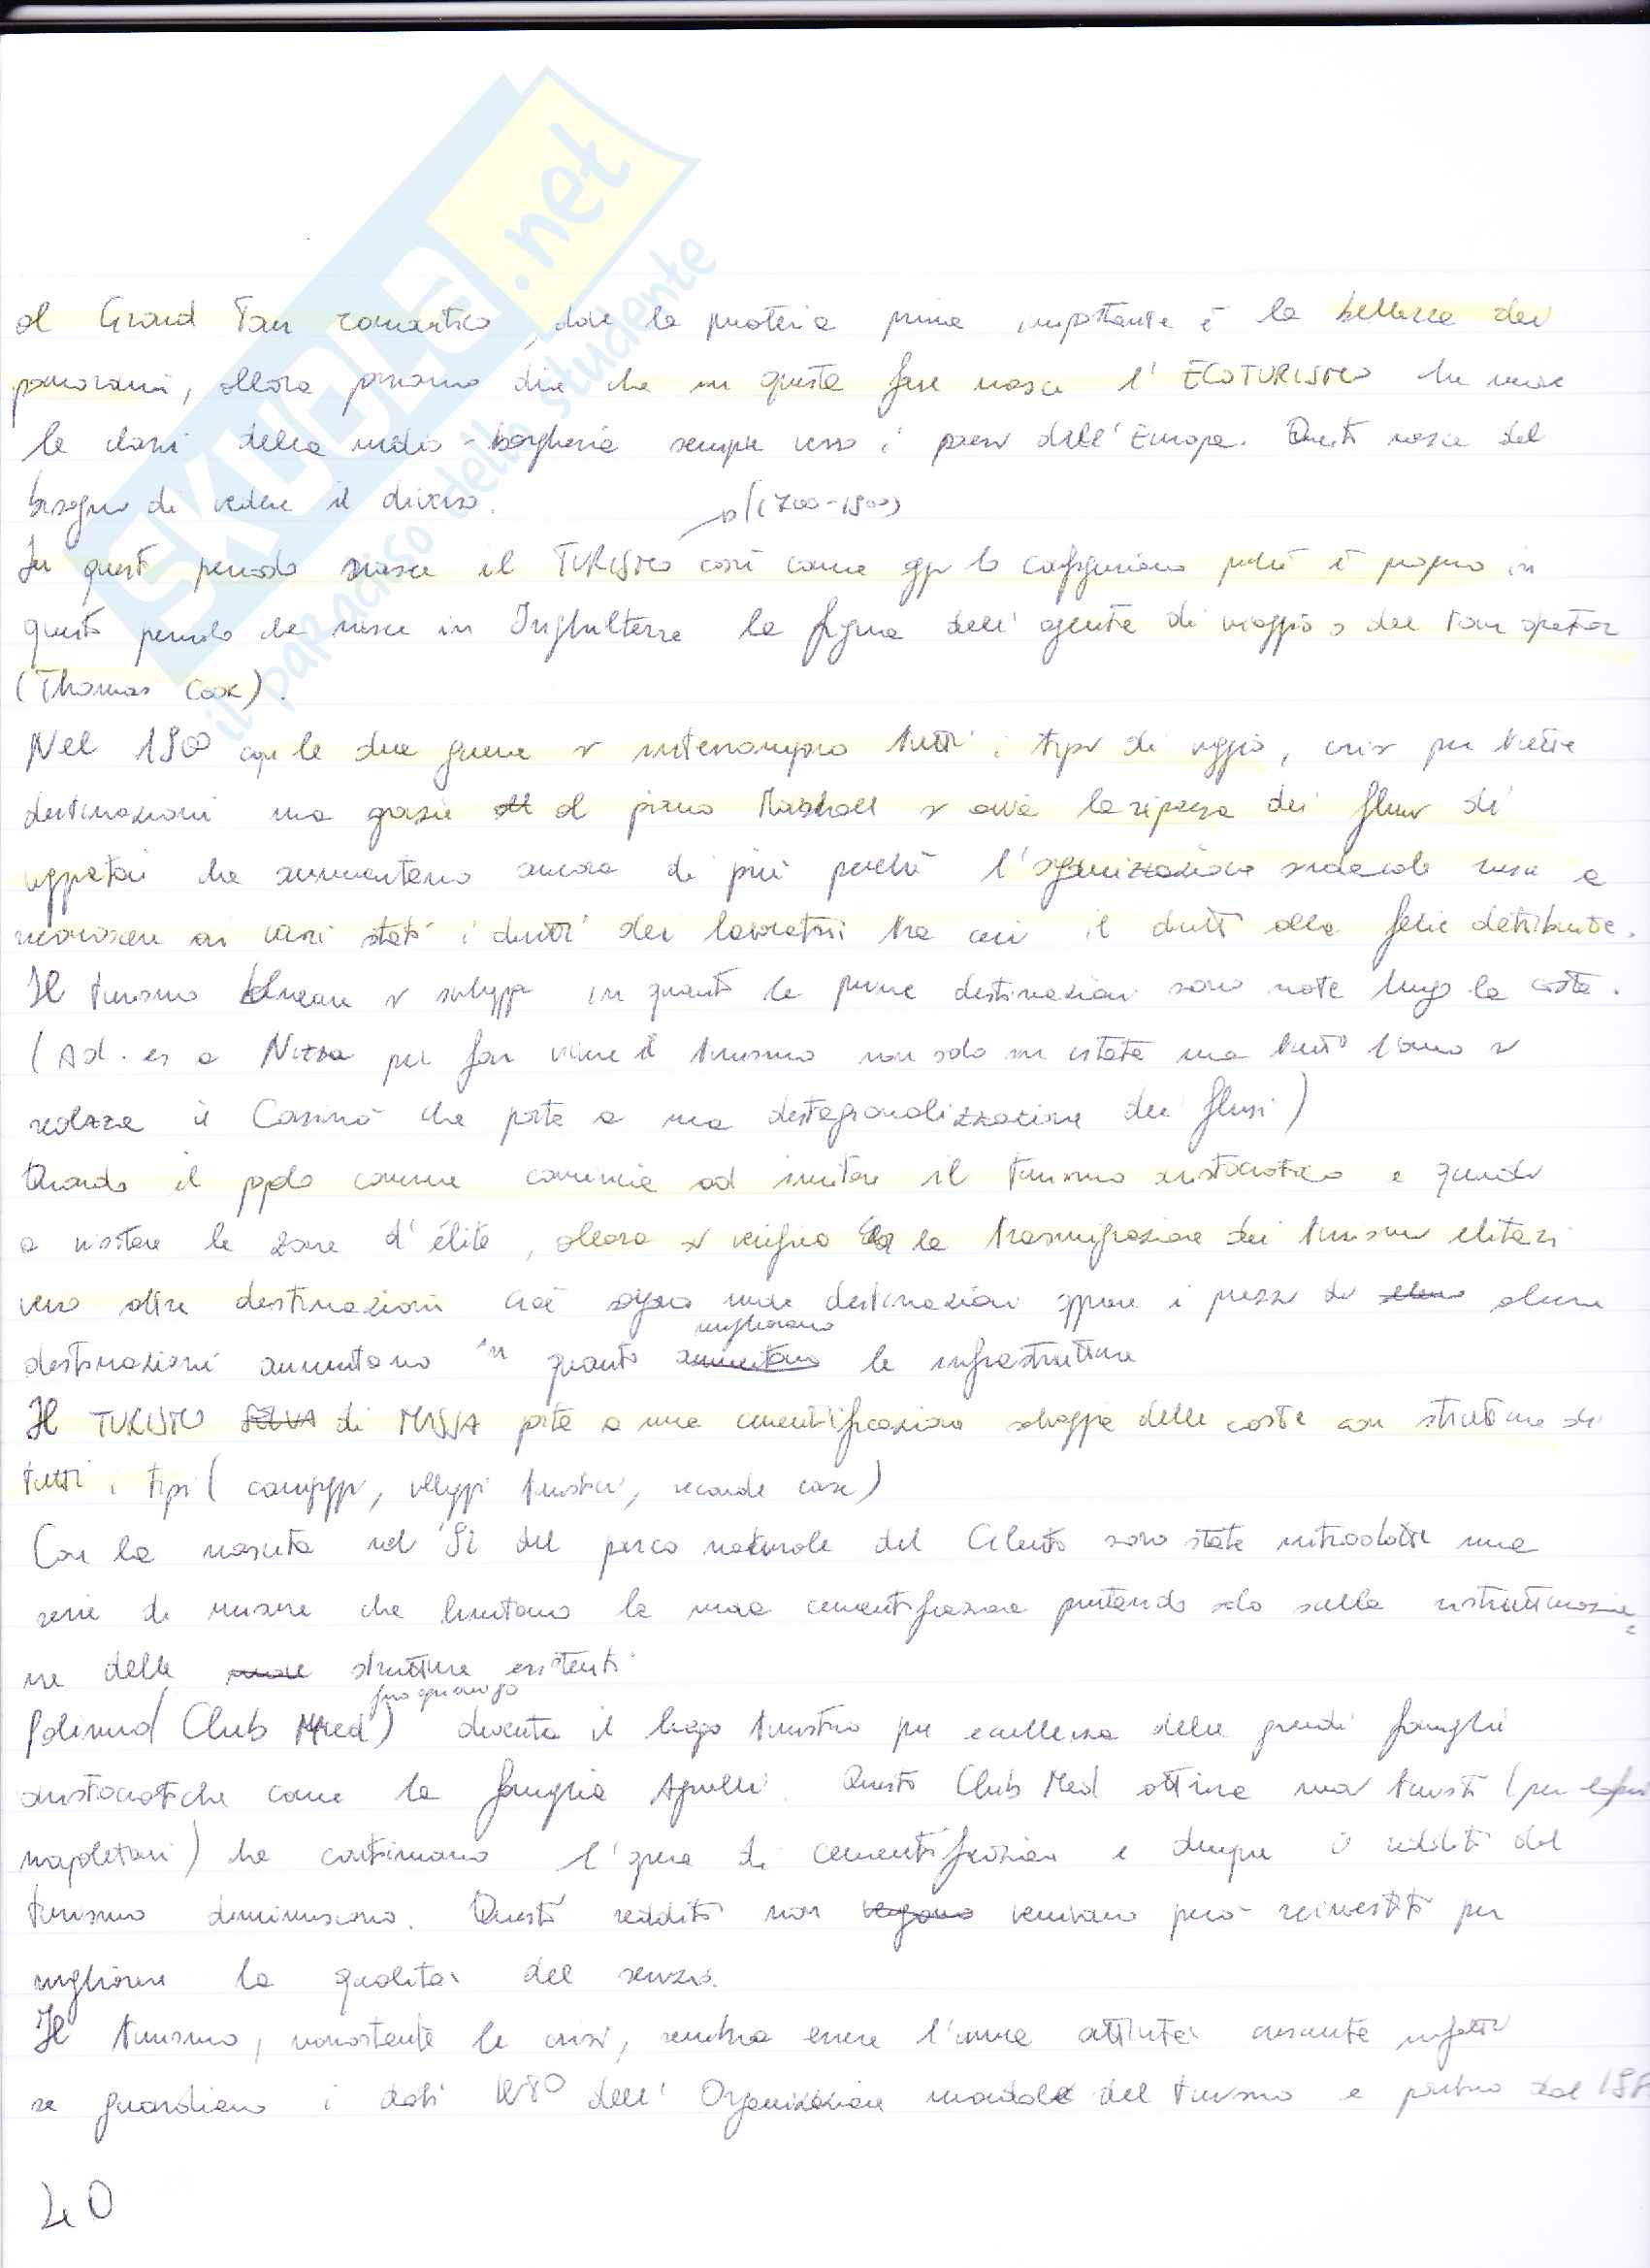 al Grand Tour romantico, dove la materia prima importante è la bellezza dei
panorami, allora possiamo dire che in questa fase nasce l'ECOTURISMO che muove
le classi della media-borghesia sempre verso i paesi dell'Europa. Questo nasce dal
bisogno di vedere il diverso.
(700-1800)
In questo periodo nasce il TURISMO così come oggi lo configuriamo perché è proprio in
questo periodo che nasce in Inghilterra la figura dell'agente di viaggio o del tour operator
(Thomas Cook).
Nel 1900 con le due guerre si interrompono tutti i tipi di viaggio, crisi per tutte
destinazioni ma grazie al piano Marshall si avvia la ripresa dei flussi di
viaggiatori che aumentano ancora di più perché l'organizzazione sindacale riesce a
riconoscere ai vari stati i diritti dei lavoratori tra cui il diritto alle ferie retribuite.
Il turismo balneare si sviluppa in quanto le prime destinazioni sono nate lungo la costa.
(Ad. es a Nizza per far vivere il turismo non solo in estate ma tutto l'anno si
realizza il Casinò che porta a una destagionalizzazione dei flussi)
Quando il popolo comune comincia ad imitare il turismo aristocratico e quindi
a visitare le zone d'élite, allora si verifica la trasmigrazione dei turismi elitari
verso altre destinazioni cioè nuove destinazioni oppure i prezzi di alcune
destinazioni aumentano in quanto migliorano le infrastrutture
Il TURISMO di MASSA porta a una cementificazione selvaggia delle coste con strutture di
tutti i tipi (campeggi, villaggi turistici, seconde case)
Con la nascita nel '91 del parco naturale del Cilento sono state introdotte una
serie di misure che limitano la nuova cementificazione puntando solo sulla ristrutturazio-
ne delle strutture esistenti
Palinuro (Club Med) diventa il luogo turistico per eccellenza delle grandi famiglie
aristocratiche come la famiglia Agnelli. Questo Club Med attira nuovi turisti (per lo più
napoletani) che continuano l'opera di cementificazione e dunque i redditi del
turismo diminuiscono. Questi redditi non venivano però reinvestiti per
migliorare la qualità del servizio.
Il turismo, nonostante la crisi, sembra essere l'unica attività crescente infatti
se guardiamo i dati dell'Organizzazione mondiale del turismo e partiamo dal
40
SKUOLA.net
il paradiso dello studente